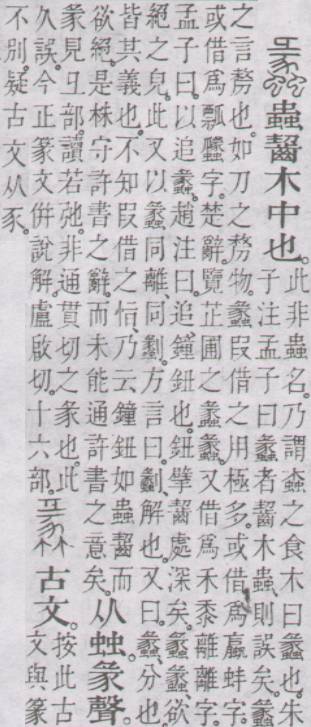 蠡
蟲齧木中也。
此非蟲名。乃謂螙之食木曰蠡也。朱
子注孟子曰蠡者齧木蟲。則誤矣。蠡
之言剺也。如刀之剺物。蠡叚借之用極多。或借爲蠃蚌字。
或借爲瓢字。楚辭覽芷圃之蠡蠡。又借爲禾黍離離字。
孟子曰。以追蠡。趙注曰。追鍾鈕也。鈕擘齧處深矣。蠡蠡欲
絕之皃。此又以蠡同離。同劙。方言曰。劙、解也。又曰。蠡、分也。
皆其義也。不知叚借之恉。乃云鐘鈕如蟲齧而
欲絕。是株守許書之辭。而未能通許書之意矣。
从䖵。彖聲。
彖見彑部。讀若弛。非通貫切之彖也。此
久誤。今正。篆文併說解。盧啟切。十六部。
古文。
按此古
文與篆
不別。疑古文从豕。